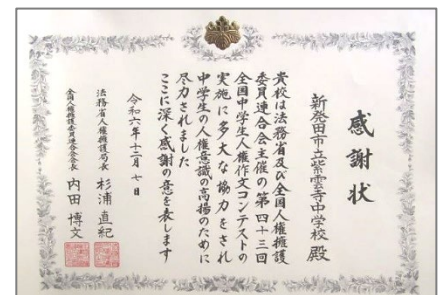 感謝状
新発田市立紫雲寺中学校 殿
貴校は法務省及び全国人権擁護
委員連合会主催の第四十三回
全国中学生人権作文コンテストの
実施に多大な協力をされ
中学生の人権意識の高揚のために
尽力されました
ここに深く感謝の意を表します
令和六年十二月七日
法務省人権擁護局長 杉浦直紀
全国人権擁護委員連合会会長 内田博文